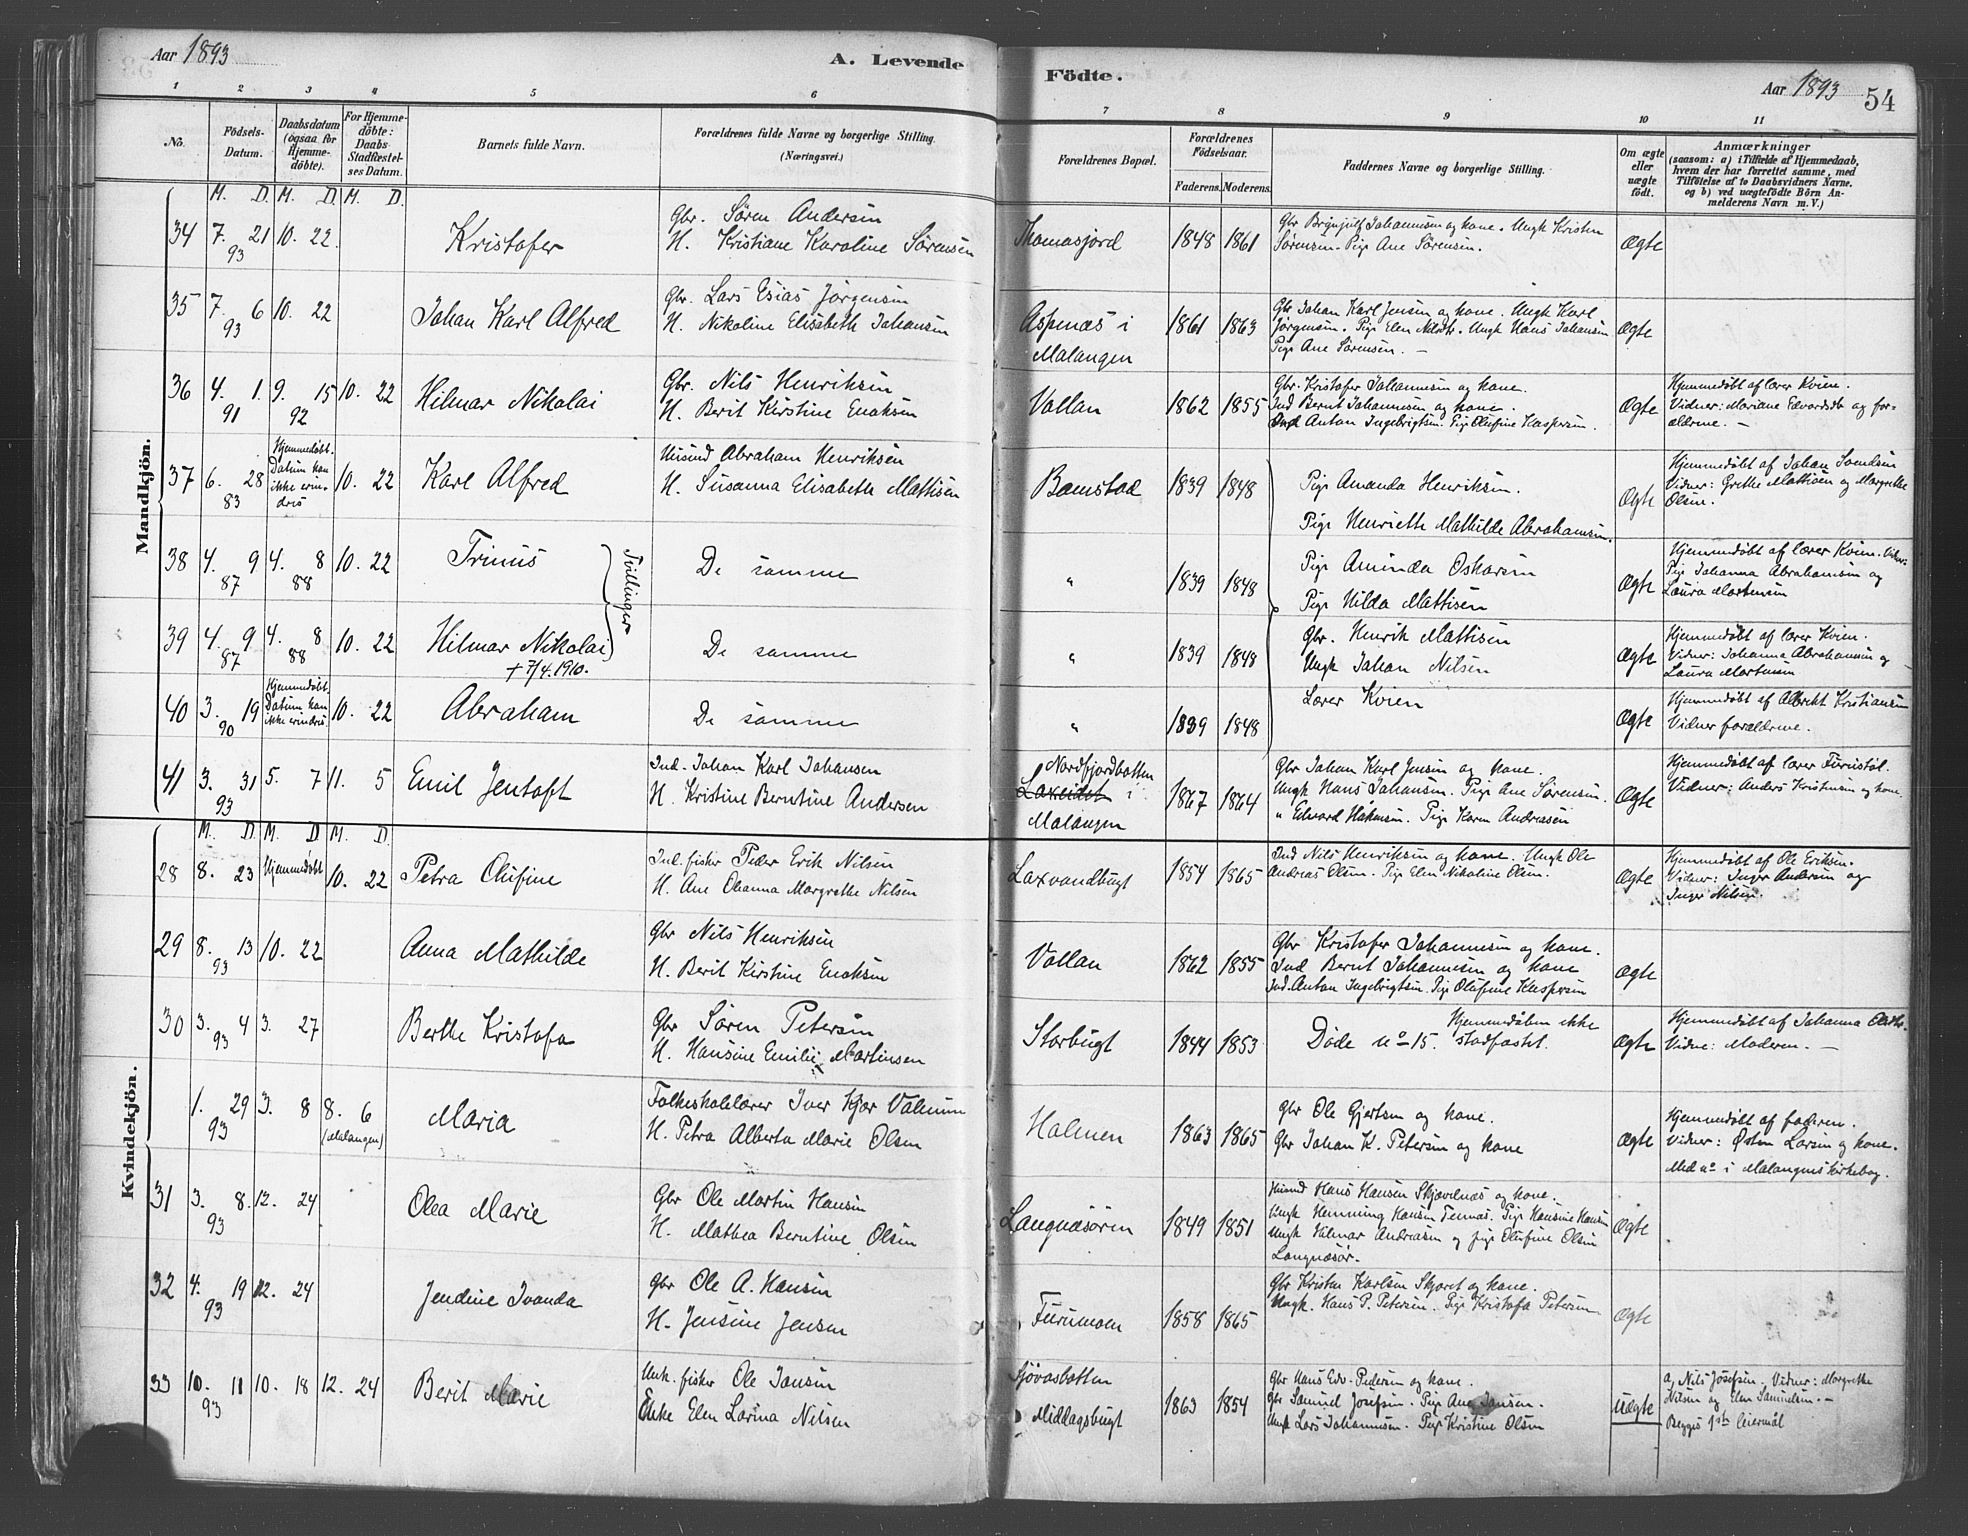 Aar 1893
A. Levende Födte.
Aar 1893 54
1 2 3 4 5 6 7 8 9 10 11
No.
Födsels-Datum.
Daabsdatum (ogsaa for Hjemmedöbte).
For Hjemmedöbte: Daabs Stadfæstelses Datum.
Barnets fulde Navn.
Forældrenes fulde Navne og borgerlige Stilling. (Næringsvei.)
Forældrenes Bopæl.
Forældrenes Födselsaar.
Faderens. Moderens.
Faddernes Navne og borgerlige Stilling.
Om ægte eller uægte födt.
Anmærkninger
(saasom: a) i Tilfælde af Hjemmedaab, hvem der har forrettet samme, med Tilföielse af to Daabsvidners Navne, og b) ved uægtefödte Börn Anmelderens Navn m. V.)
Mandkjön.
M. D. M. D. M. D.
34 7. 21 93 10. 22. Kristofer
Gbr. Sören Andersen
H. Kristiane Karoline Sörensen
Thomasjord 1848 1861
Gbr Brynjulf Johannesen og kone. Ungk Kristen
Sörensen. Pige Ane Sörensen.
Ægte
35 7. 6 93 10. 22 Johan Karl Alfred
Gbr. Lars Esias Jörgensen
H. Nikoline Elisabeth Johansen
Aspenæs i
Malangen 1861 1863
Gbr Johan Karl Jensen og kone. Ungk Karl
Jörgensen. Pige Elen Nilsdtr. Ungk Hans Johansen
Pige Ane Sörensen. —
Ægte
36 4. 1. 91 9. 15 92 10. 22 Hilmar Nikolai
Gbr. Nils Henriksen
H. Berit Kirstine Enoksen
Vollan 1862 1855
Gbr. Kristofer Johannesen og kone.
Ind Bernt Johannesen og kone.
Ind Anton Ingebrigtsen. Pige Olufine Kaspersen.
Ægte
Hjemmedöbt af lærer Kvien.
Vidner: Mariane Edvardsdtr og for-
ældrene. —
37 6. 28 83
Hjemmedöbt.
Datum kan
ikke erin-
dres
10. 22 Karl Alfred
Husmd Abraham Henriksen
H. Susanna Elisabeth Mattisen
Bomstad 1839 1848
Pige Amanda Henriksen.
Pige Henriette Mathilde Abrahamsen.
Ægte
Hjemmedöbt af Johan Svendsen
Vidner: Grethe Mattisen og Margrethe
Olsen.
38 4. 9 87 4. 8 88 10. 22 Trinus
Tvillinger
De samme
" 1839 1848
Pige Aminda Oskarsen
Pige Hilda Mattisen
Ægte
Hjemmedöbt af lærer Kvien. Vidner:
Pige Johanna Abrahamsen og
Laura Mortensen
39 4. 9 87 4. 8 88 10. 22 Hilmar Nikolai
† 7/4. 1910.
De samme
" 1839 1848
Gbr. Henrik Mattisen
Ungk Johan Nilsen
Ægte
Hjemmedöbt af lærer Kvien.
Vidner: Johanna Abrahamsen og
Laura Mortensen
40 3. 19 90
Hjemmedöbt.
Datum kan
ikke erindres.
10. 22 Abraham
De samme
" 1839 1848
Lærer Kvien
Ægte
Hjemmedöbt af Albrikt Kristiansen
Vidner forældrene.
41 3. 31 93 5. 7 11. 5 Emil Jentoft
Ind. Johan Karl Johansen
H. Kristine Berntine Andersen
Nordfjordbotten
Laxeidet i
Malangen 1867 1864
Gbr Johan Karl Jensen og kone.
Ungk Hans Johansen. Pige Ane Sörensen.
" Edvard Håkensen. Pige Karen Andreasen
Ægte
Hjemmedöbt af lærer Furustöl.
Vidner: Anders Kristensen og kone.
Kvindekjön.
M. D. M. D. M. D.
28 8. 23 Hjemmedöbt 10. 22 Petra Olufine
Ind. fisker Peder Erik Nilsen
H. Ane Olianna Margrethe Nilsen
Laxvandbugt 1854 1865
Ind Nils Henriksen og kone. Ungk Ole
Andreas Olsen. Pige Elen Nikoline Olsen.
Ægte
Hjemmedöbt af Ole Eriksen.
Vidner: Inger Andersen og
Inger Nilsen.
29 8. 13 93 10. 22 Anna Mathilde
Gbr Nils Henriksen
H. Berit Kirstine Enoksen
Vollan 1862 1855
Gbr Kristofer Johannesen og kone.
Ind Bernt Johannesen og kone
Ind. Anton Ingebrigtsen. Pige Olufine Kaspersen
Ægte
30 3. 4 93 3. 27 Berthe Kristofa
Gbr Sören Petersen
H. Hansine Emilie Martinsen
Storbugt 1844 1853
Döde no 15. Hjemmedåben ikke
stadfæstet.
Ægte
Hjemmedöbt af Johanna
Vidne: Moderen. —
1. 29 93 3. 8 8. 6 (Malangen) Maria
Folkeskolelærer Iver Kjær
H. Petra Alberta Marie Olsen
Holmen 1863 1865
Gbr Ole Gjertsen og kone.
Gbr Johan K. Petersen og kone
Ægte
Hjemmedöbt af faderen.
Vidner: Østen Larsen og kone.
Med no i Malangens kirkebog.
31 3. 8. 93 12. 24 Olea Marie
Gbr Ole Martin Hansen
H. Mathea Berntine Olsen
Langnæsören 1849 1851
Husmd Hans Hansen Skjævelnæs og kone.
Ungk Hemming Hansen Tennæs. Pige Hansine Hansen
Ungk Valmar Andreasen og pige Olufine Olsen
Langnæsör.
Ægte
32 4. 19 93 12. 24 Jendine Ivanda
Gbr Ole A. Hansen
H. Jensine Jensen
Furumoen 1858 1865
Gbr Kristen Karlsen Skjæret og kone.
Ungk. Hans P. Petersen. Pige Kristofa Petersen
Ægte
33 10. 11 93 10. 18 12. 24 Berit Marie
Unk. fisker Ole Jansen
Enke Elen Lorina Nilsen
Sjövasbotten
Middagsbugt 1863 1854
Gbr Hans Edv. Pedersen og kone.
Gbr Samuel Josefsen. Pige Ane Jansen.
Ungk Lars Johannesen. Pige Kristine Olsen
Uægte
a, Nils Josefsen. Vidner: Margrethe
Nilsen og Elen Samuelsen. —
Begges 1ste leiermål